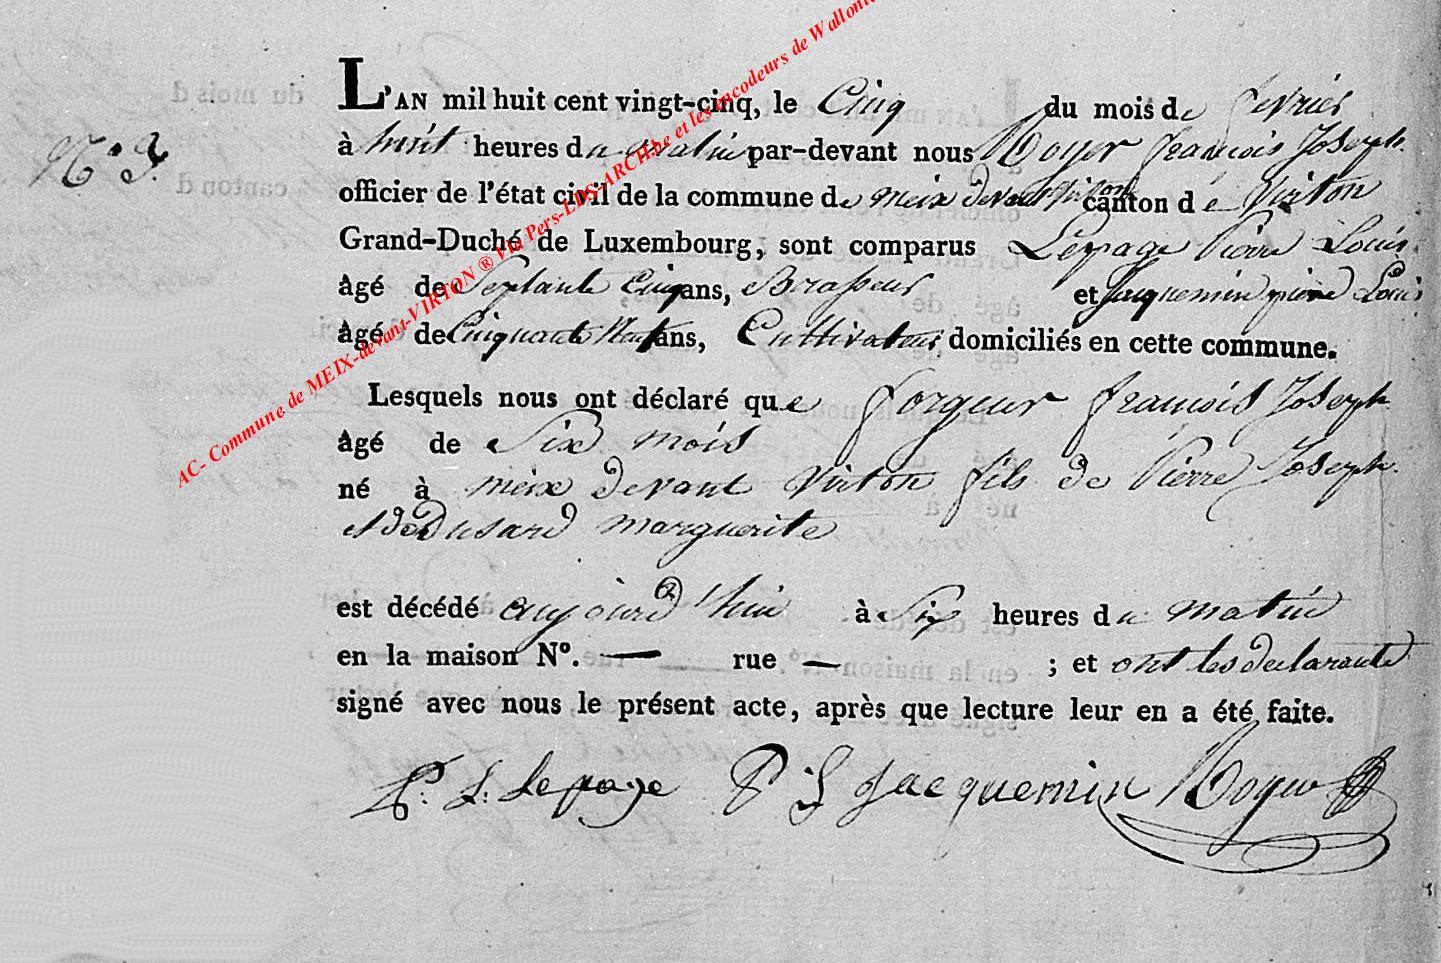 AC- Commune de MEIX-devant-VIRTON ® Via Pers-LDS-ARCH.be et les encodeurs de Wallonie
L'AN mil huit cent vingt-cinq, le Cinq du mois de fevrier
N° 3.
à huit heures du matin par-devant nous Royer francois Joseph
officier de l'état civil de la commune de meix devant virton canton de Virton
Grand-Duché de Luxembourg, sont comparus Lepage Pierre Louis
âgé de Septante Cinq ans, Brasseur et Jacquemin pierre Louis
âgé de Cinquante Neuf ans, Cultivateur domiciliés en cette commune.
Lesquels nous ont déclaré que forgeur francois Joseph
âgé de Six mois
né à meix devant virton fils de Pierre Joseph
et de Dusard marguerite
est décédé aujourd'hui à Six heures du matin
en la maison N°. — rue — ; et ont les declarants
signé avec nous le présent acte, après que lecture leur en a été faite.
P. L. Lepage P L Jacquemin Royer